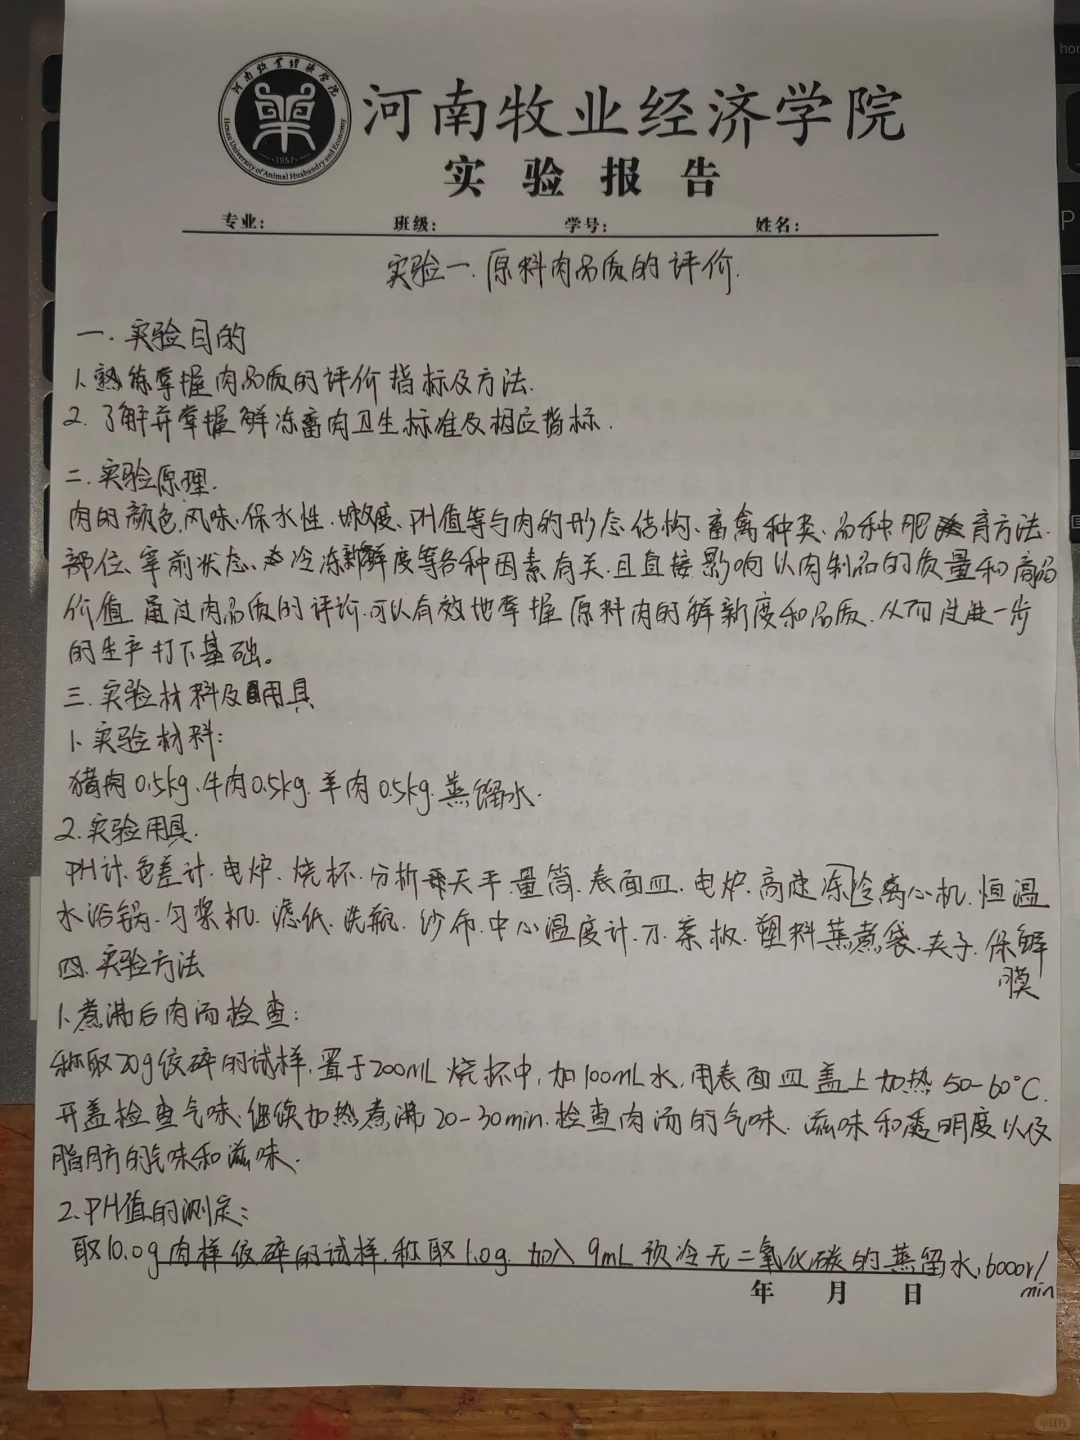 河南牧业经济学院
Henan University of Animal Husbandry and Economy
·1957·
河南牧业经济学院
实验报告
专业： 班级： 学号： 姓名：
实验一.原料肉品质的评价.
一.实验目的
1.熟练掌握肉品质的评价指标及方法.
2.了解并掌握鲜冻畜肉卫生标准及相应指标.
二.实验原理.
肉的颜色.风味.保水性.嫩度、PH值等与肉的形态结构、畜禽种类、品种.肥育方法.
部位、宰前状态、冷冻新鲜度等各种因素有关.且直接影响以肉制品的质量和商品
价值.通过肉品质的评价.可以有效地掌握原料肉的鲜新度和品质.从而进一步
的生产打下基础。
三.实验材料及用具
1.实验材料：
猪肉0.5kg、牛肉0.5kg.羊肉0.5kg.蒸馏水.
2.实验用具.
PH计.色差计.电炉.烧杯.分析天平.量筒.表面皿.电炉.高速冻冷离心机.恒温
水浴锅.匀浆机.滤纸.洗瓶.纱布.中心温度计.刀.案板.塑料蒸煮袋.夹子.保鲜
膜
四.实验方法
1.煮沸后肉汤检查：
称取20g绞碎的试样,置于200mL烧杯中,加100mL水.用表面皿盖上加热50-60°C.
开盖检查气味.继续加热煮沸20-30min.检查肉汤的气味.滋味和透明度以及
脂肪的气味和滋味.
2.PH值的测定：
取10.0g肉样绞碎的试样.称取1.0g.加入9mL预冷无二氧化碳的蒸留水,6000r/
min
年 月 日